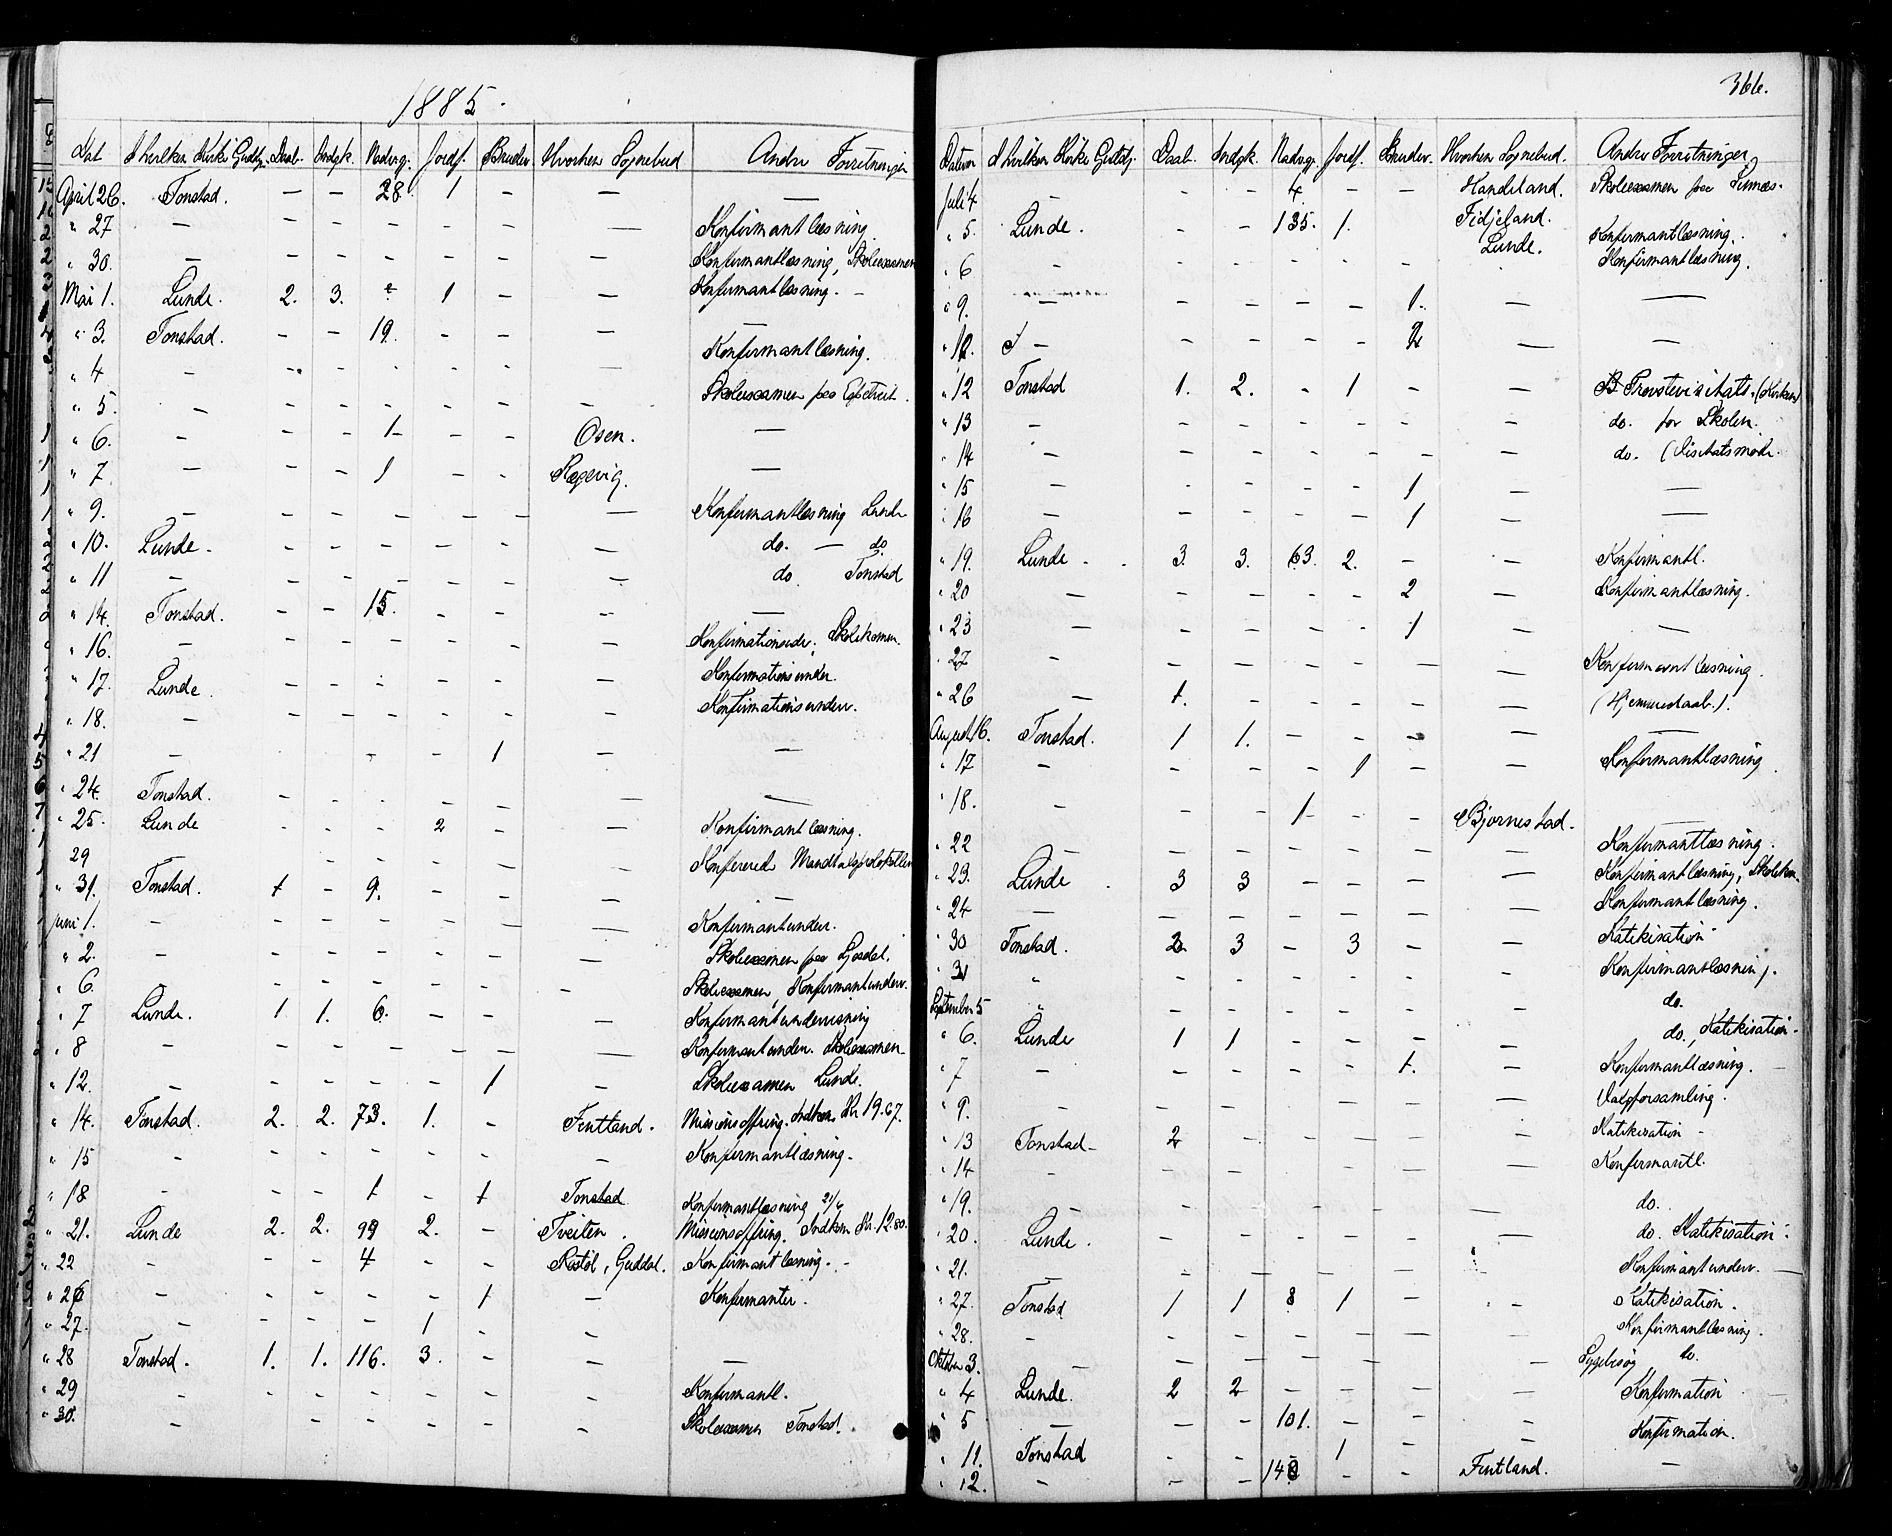 1885.
366.
Dat I hvilken Kirke Gudtj. Daab. Indgk. Nadvrg. Jordf. Brudev. Hvorhen Sognebud Andre Forretninger
April 26. Tonstad. — — 28. 1 — — —
" 27 — — — - - - — Konfirmantlæsning
" 30. — — — - - - — Konfirmantlæsning, Skoleexamen
Mai 1. Lunde. 2. 3. 1 — — Konfirmantlæsning. —
" 3. Tonstad. — — 19. - - — —
" 4 - - - - - - — Konfirmantlæsning.
" 5. - - - - - - - Skoleexamen paa
" 6. - - - 1 - - Osen. —
" 7 — - - 1 - - Regevig. —
" 9. — — — — — — — Konfirmantlæsning Lunde
" 10. Lunde. - - - - - — do. — do
" 11 — - — — - - — do Tonstad
" 14. Tonstad. — — 15. - - — —
" 16. - - - - - - — Konfirmationunder. Skolekomm.
" 17. Lunde. - - - - - — Konfirmationsunder.
" 18. - - - - - - — Konfirmationsunderv.
" 21 — - - 1 — —
" 24. Tonstad. - - - - - — —
" 25. Lunde - - - 2 - — Konfirmantlæsning.
29 - - - - — Konferered Mandtalsprotokollen
" 31. Tonstad. 1 - 9. - - — —
Juni 1. - - - - - - — Konfirmantunder.
" 2. - - - - - - — Skoleexamen paa Ljosdal.
" 6. - - - - - - Skoleexamen, Konfirmantunderv.
" 7 Lunde. 1 1. 6. - - — Konfirmantundervisning
" 8 - - - - - - — Konfirmantunder. Skoleexamen
" 12. — - - - - 1 — Skoleexamen Lunde.
" 14. Tonstad. 2. 2. 73. 1. - Fintland. Missionsoffring. Indkom Kr 19.67.
" 15 - - - - - - — Konfirmantlæsning.
" 18 - - - 1 - 1 Tonstad Konfirmantlæsning 21/6
" 21. Lunde 2. 2. 99 2. - Tveiten. Missionsoffring. Indkom Kr. 12.80.
" 22 - - - 4 - - Røstøl, Guddal. Konfirmantlæsning.
" 26 - - - - - 1 — Konfirmanter.
" 27. - - - - 1 - -
" 28 Tonstad. 1. 1. 116. 3. - — —
" 29 - - - - - - - Konfirmantl.
" 30. - - - - - - - Skoleexamen Tonstad.
Datum I hvilken Kirke Gudtj. Daab. Indgk. Nadvg. Jordf. Brudev. Hvorhen Sognebud. Andre Forretninger
Juli 4 — - - 4. — — Handeland. Skoleexamen paa
" 5. Lunde. - - 135. 1. Fidjeland. Lunde. Konfirmantlæsning.
" 6 - - - - - - Konfirmantlæsning.
" 9. — - - - - 1. — —
" - - - - 2 — —
" 12 Tonstad 1. 2. - 1 - — Provstevisitats. (Kirken)
" 13 - - - - - - — do. for Skolen.
" 14 - - - - - - — do. (Visitatsmøde.
" 15 — - - - - 1 — —
" 16 — - - - - 1 — —
" 19. Lunde. 3. 3. 63. 2. - — Konfirmantl.
" 20 — - - - - 2 — Konfirmantlæsning.
" 23 — - - - - 1 — —
" 27 - - - - - — — Konfirmantlæsning.
" 26 — 1. - - - - — (Hjemmedaab.).
August 16. Tonstad. 1 1. - - - — —
" 17 - - - - 1 - — Konfirmantlæsning.
" 18. - - - 1 - - Bjørnestad.
" 22 — - - - - - — Konfirmantlæsning.
" 23. Lunde. 3 3 - - - — Konfirmantlæsning, Skolekom.
" 24 — - - - - - — Konfirmantlæsning.
" 30 Tonstad. 2. 3 - 3 - — Katekisation
" 31 " - - - - - - Konfirmantlæsning.
September 5 " - - - - - - do.
" 6. Lunde 1 1 - - - — do., Katekisation
" 7 - - - - - 1. — Konfirmantlæsning.
" 9. - - - - - - — Valgforsamling.
" 13 Tonstad- 2 - - - - — Katekisation
" 14 - - - - - - — Konfirmantl.
" 19. - - - - - - — do.
" 20. Lunde. - - - - - — do. Katekisation.
" 21. — - - - - - Konfirmantunderv.
" 27. Tonstad 1 1 8 1 - - Katekisation.
" 28. - - - - - — — Konfirmantlæsning.
Oktober 3. — - - - - - Sygebesøg do.
" 4 Lunde. 2 2 - - - — Konfirmation
" 5 — - - 101. - - — Konfirmation.
" 11. Tonstad - - - 1 - — —
" 12. - - - - - Fintland.